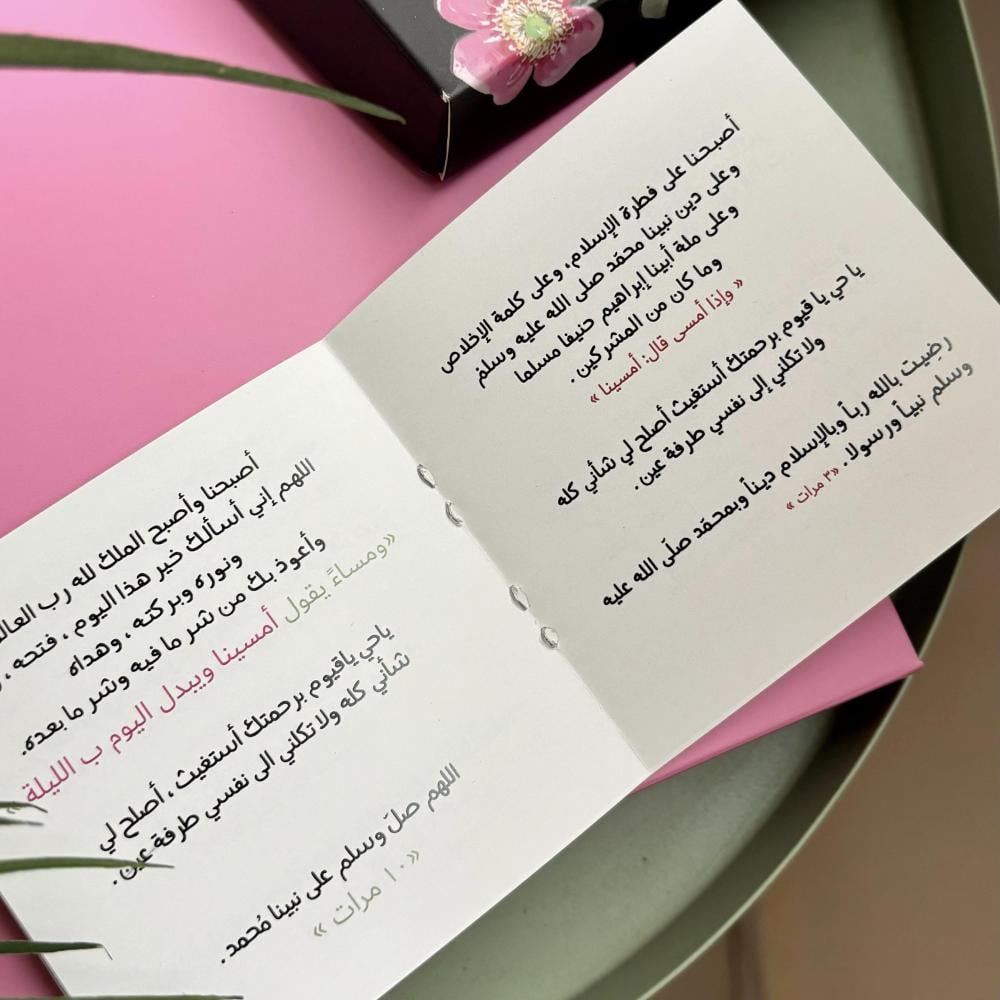 أصبحنا على فطرة الإسلام، وعلى كلمة الإخلاص
وعلى دين نبينا محمّد صلى الله عليه وسلم
وعلى ملة أبينا إبراهيم حنيفا مسلما
وما كان من المشركين.
« وإذا أمسى قال: أمسينا »
يا حي يا قيوم برحمتك أستغيث أصلح لي شأني كله
ولا تكلني إلى نفسي طرفة عين.
رضيت بالله رباً وبالإسلام ديناً وبمحمّد صلّى الله عليه
وسلم نبياً ورسولا. «٣ مرات »
أصبحنا وأصبح الملك لله رب
اللهم إني أسألك خير هذا اليوم ، فتحه ،
ونوره وبركته ، وهداه
وأعوذ بك من شر ما فيه وشر ما بعده.
«ومساءً يقول أمسينا ويبدل اليوم ب الليلة »
ياحي ياقيوم برحمتك أستغيث ، أصلح لي
شأني كله ولا تكلني الى نفسي طرفة عين.
اللهم صلَ وسلم على نبينا مُحمد.
«١٠ مرات »